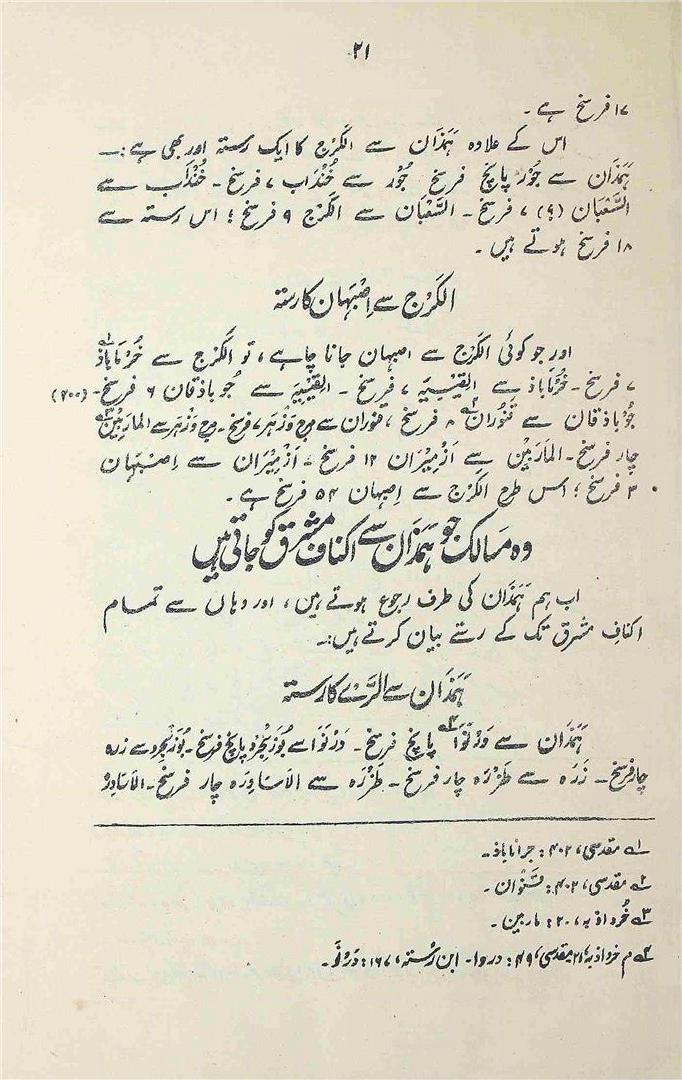 ۲۱
۱۷ فرسخ ہے۔
اس کے علاوہ ہَمَذَان سے الکَرْج کا ایک رستہ اور بھی ہے :—
ہَمَذَان سے جُوْر پانچ فرسخ جُوْر سے خُنْدَاب ۷ فرسخ۔ خُنْدَاب سے
السَّعْبَان (؟) ۷ فرسخ۔ السَّعْبَان سے الکَرْج ۹ فرسخ ؛ اس رستہ سے
۱۸ فرسخ ہوتے ہیں۔
الکَرْج سے اِصْبَہان کا رستہ
اور جو کوئی الکَرْج سے اصبہان جانا چاہے، تو الکَرْج سے خُرْمَاباذ۱؎
۷ فرسخ۔ خُرْمَاباذ سے ۷ فرسخ۔ سے جُوباذقان ۶ فرسخ۔ (۲۰۰)
جُوْباذقان سے ۲؎ ۸ فرسخ، سے مرج وَزْہَر ۷ فرسخ۔ مرج وَزْہَر سے المارَبِیْن۳؎
چار فرسخ۔ المارَبِیْن سے اَزْمِیْران ۱۲ فرسخ۔ اَزْمِیْران سے اِصْبَہان
۳ فرسخ ؛ اس طرح الکَرْج سے اِصبہان ۵۴ فرسخ ہے۔
وہ مَسالک جو ہَمَذَان سے اکناف مشرق کو جاتی ہیں
اب ہم ہَمَذَان کی طرف رجوع ہوتے ہیں، اور وہاں سے تمام
اکنافِ مشرق تک کے رستے بیان کرتے ہیں :۔
ہَمَذَان سے الرَّے کا رستہ
ہَمَذَان سے دَرْنَوَا۴؎ پانچ فرسخ۔ دَرْنَوَا سے بُوْزَنَجِرْد پانچ فرسخ۔ بُوْزَنَجِرْد سے زرہ
چار فرسخ۔ زَرَہ سے طَزْرَہ چار فرسخ۔ طَزْرَہ سے الاَسَاوِرَہ چار فرسخ۔ الاَسَاوِرَہ
۱؎ مقدسی، ۴۰۲ : جراناباذ۔
۲؎ مقدسی، ۴۰۲ :
۳؎ خُرداذبہ، ۲۰ : ماربین۔
۴؎ م خرداذبہ، ۲۱ مقدسی، ۴۹ : دروا۔ ابن رُستہ، ۱۶۷ : دَرْنَوَ۔